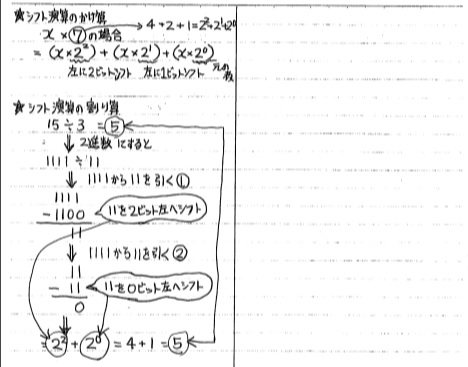 ★シフト演算のかけ算
x × 7 の場合 → 4+2+1=2²+2¹+2⁰
= (x×2²) + (x×2¹) + (x×2⁰)
左に2ビットシフト 左に1ビットシフト 元の数
★シフト演算の割り算
15÷3 = 5
⇓ 2進数にすると
1111 ÷ 11
⇓ 1111から11を引く①
1111
-1100 11を2ビット左へシフト
11
⇓ 1111から11を引く②
11
- 11 11を0ビット左へシフト
0
= 2² + 2⁰ = 4+1 = 5